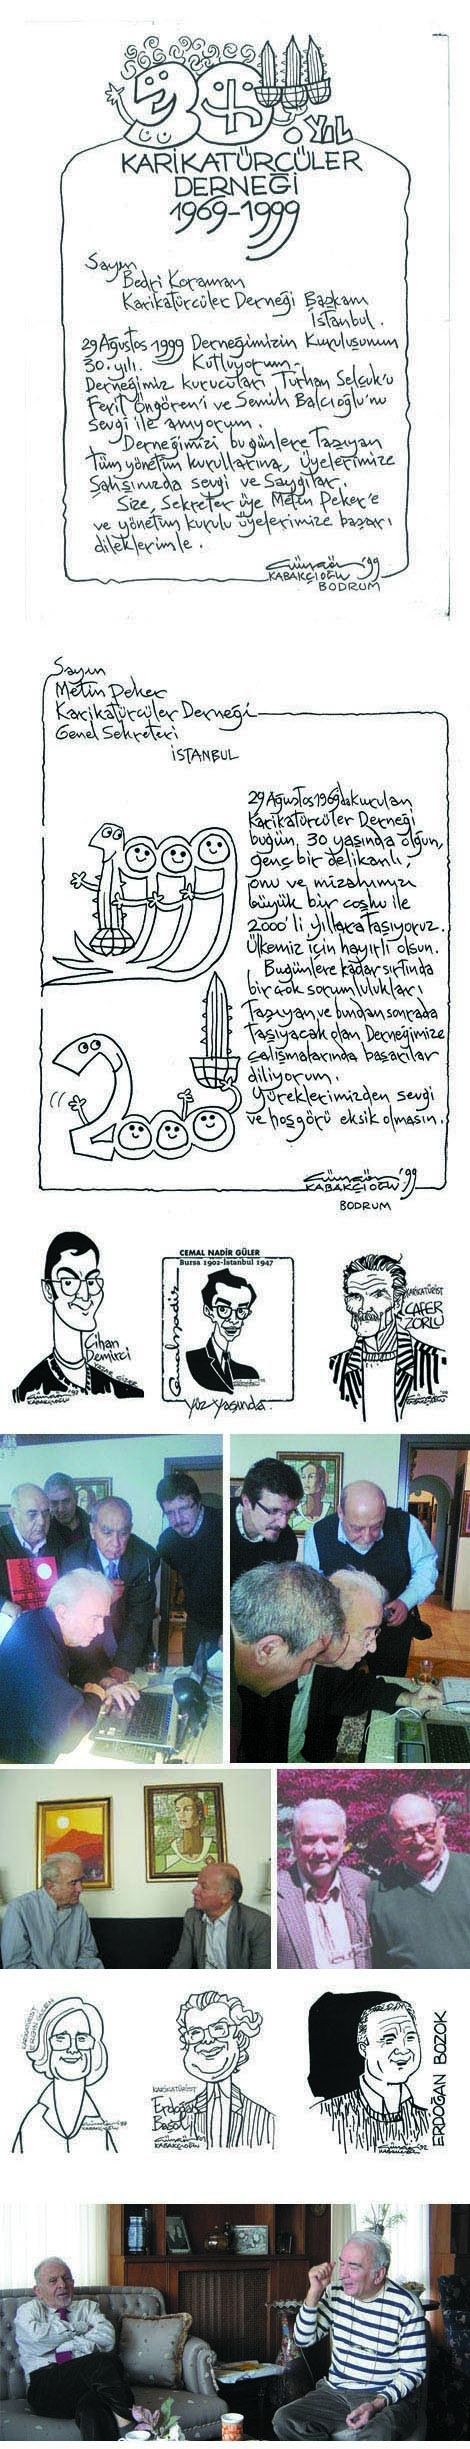 30. YIL
KARİKATÜRCÜLER
DERNEĞİ
1969-1999
Sayın
Bedri Koraman
Karikatürcüler Derneği Başkanı
İstanbul.
29 Ağustos 1999 Derneğimizin Kuruluşunun
30. yılı. Kutluyorum.
Derneğimiz kurucuları Turhan Selçuk'u
Ferit Öngören'i ve Semih Balcıoğlu'nu
sevgi ile anıyorum.
Derneğimizi bugünlere Taşıyan
tüm yönetim kurullarına, üyelerimize
Şahsınızda sevgi ve Saygılar.
Size, Sekreter üye Metin Peker'e
ve yönetim kurulu üyelerimize başarı
dileklerimle.
Gürsön '99
KABAKÇIOĞLU
BODRUM
Sayın
Metin Peker
Karikatürcüler Derneği
Genel Sekreteri
İSTANBUL
29 Ağustos 1969'da kurulan
Karikatürcüler Derneği
bugün, 30 yaşında olgun,
genç bir delikanlı,
onu ve mizahımızı
büyük bir coşku ile
2000'li yıllara taşıyoruz.
Ülkemiz için hayırlı olsun.
Bugünlere kadar sırtında
bir çok sorumlulukları
Taşıyan ve bundan sonrada
Taşıyacak olan Derneğimize
çalışmalarında başarılar
diliyorum.
Yüreklerimizden sevgi
ve hoşgörü eksik olmasın.
2000
'99
KABAKÇIOĞLU
BODRUM
Cihan
Demirci
KABAKÇIOĞLU
CEMAL NADİR GÜLER
Bursa 1902-İstanbul 1947
Cemal Nadir
Yüz Yaşında.
KARİKATÜRİST
CAFER
ZORLU
KABAKÇIOĞLU
KARİKATÜRİST
KABAKÇIOĞLU
KARİKATÜRİST
Erdoğan
Başol
KABAKÇIOĞLU
ERDOĞAN BOZOK
KABAKÇIOĞLU